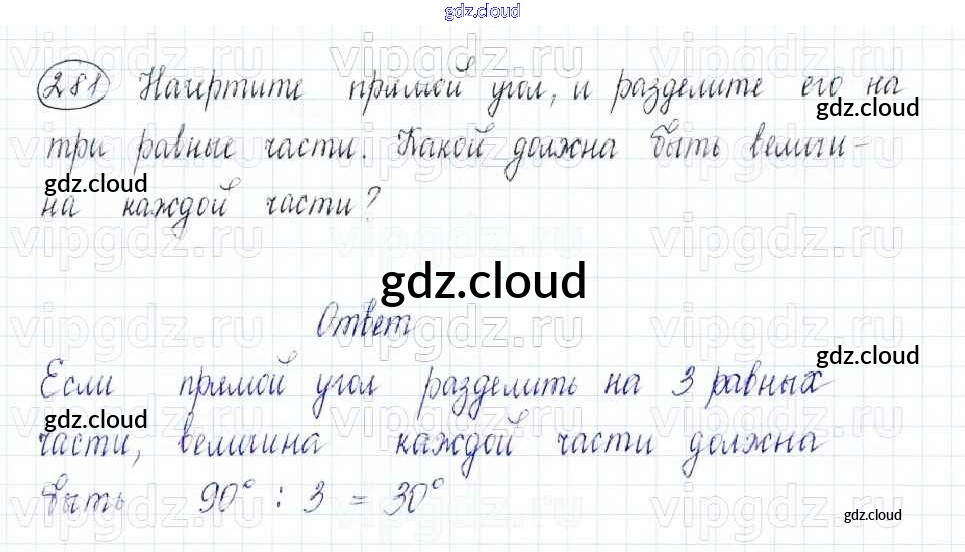 gdz.cloud
281 Начертите прямой угол, и разделите его на
три равные части. Какой должна быть величи-
на каждой части?
Ответ
Если прямой угол разделить на 3 равных
части, величина каждой части должна
быть 90° : 3 = 30°
gdz.cloud
gdz.cloud
gdz.cloud
gdz.cloud
gdz.cloud
gdz.cloud
vipgdz.ru